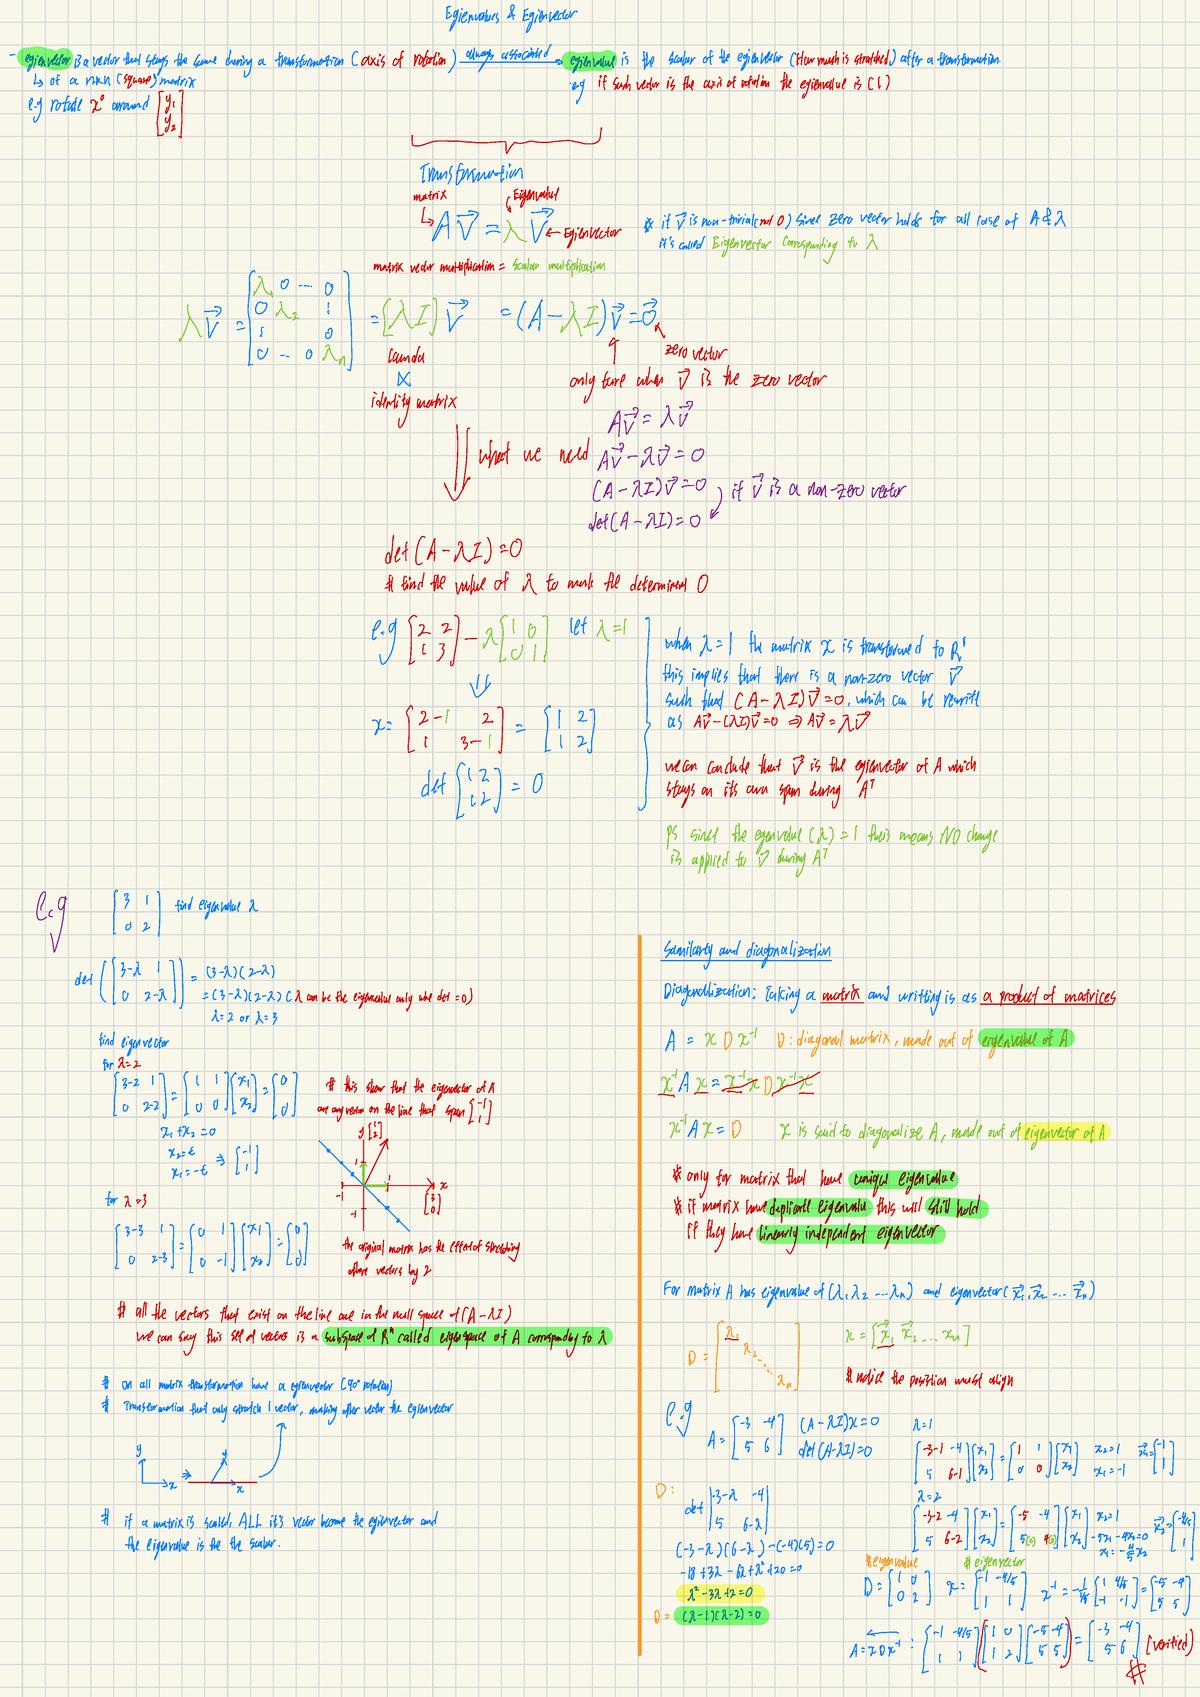 Egienvalues & Egienvector
- egienvector is a vector that stays the same during a transformation (axis of rotation) always associated → egienvalue is the scaler of the egienvector (How much is stretched) after a transformation.
↳ of a nxn (square) matrix
e.g if such vector is the axis of rotation the egienvalue is (1)
e.g rotate x° around [y1 y2]
Transformation
matrix Eigenvalue
A v = λ v ← Egienvector
※ if v is non-trivial (not 0) since zero vector holds for all case of A & λ
it's called Eigenvector corresponding to λ
matrix vector multiplication = scalar multiplication
λv = [λ1 0 ... 0; 0 λ2; 0; 0 ... 0 λn] = [λI] v = (A - λI) v = 0
zero vector
identity matrix
only ture when v is the zero vector
Av = λv
what we need Av - λv = 0
(A - λI)v = 0 if v is a non-zero vector
det(A - λI) = 0
det (A - λI) = 0
# find the value of λ to the determinant 0
e.g [2 2; 1 3] - λ[1 0; 0 1] let λ=1
x = [2-1 2; 1 3-1] = [1 2; 1 2]
det [1 2; 1 2] = 0
when λ=1 the matrix x is transformed to R¹
this implies that there is a non-zero vector v
such that (A - λI)v = 0, which can be rewrite
as Av - (λI)v = 0 ⇒ Av = λv
we can conclude that v is the egienvector of A which
stays on its own span during Aᵀ
PS since the egenvalue (λ) = 1 this means NO change
is applied to v during Aᵀ
e.g [3 1; 0 2] find eigenvalue λ
det ([3-λ 1; 0 2-λ]) = (3-λ)(2-λ)
= (3-λ)(2-λ) (λ can be the eigenvalue only whe det = 0)
λ=2 or λ=3
find eigenvector
for λ=2
[3-2 1; 0 2-2] = [1 1; 0 0][x1; x2] = [0; 0]
x1 + x2 = 0
x2 = t
x1 = -t ⇒ [-1; 1]
# this show that the eigenvector of A
are any vector on the line that span [-1; 1]
y [1; 2]
1
-1 1 x
[3; 0]
-1
the original matrix has the effect of stretching
other vectors by 2
for λ=3
[3-3 1; 0 2-3] = [0 1; 0 -1][x1; x2] = [0; 0]
# all the vectors that exist on the line are in the null space of (A - λI)
we can say this set of vectors is a subspace of Rⁿ called eigenspace of A corresponding to λ
# on all matrix transformation have a egienvector (90° rotation)
# Transformation that only stretch 1 vector, making other vector the egienvector
y y
x ⇒ x
# if a matrix is scaled, ALL it's vector become the egienvector and
the eigenvalue is the the scalar.
Similarty and diagonalization
Diagonallization: Taking a matrix and writting is as a product of matrices
A = x D x⁻¹ D: diagonal matrix, made out of eigenvalue of A
x⁻¹ A x = x⁻¹ x D x⁻¹ x
x⁻¹ A x = D x is said to diagonalize A, made out of eigenvector of A
※ only for matrix that have unique eigenvalue
※ if matrix have duplicate eigenvalue this will still hold
if they have linearly independent eigenvector
For matrix A has eigenvalue of (λ1, λ2 ... λn) and eigenvector (x1, x2 ... xn)
D = [λ1 λ2 ... λn] x = [x1 x2 ... xn]
# notice the position must align
e.g A = [-3 -4; 5 6] (A - λI)x = 0
det(A - λI) = 0
λ=1
[-3-1 -4; 5 6-1][x1; x2] = [1 1; 0 0][x1; x2] x2 = 1 x1 = -1 x1 = [-1; 1]
λ=2
[-3-2 -4; 5 6-2][x1; x2] = [-5 -4; 5(0) 4(0)][x1; x2] x2 = 1 -5x1 - 4x2 = 0 x1 = -4/5 x2 x2 = [-4/5; 1]
D:
det |-3-λ -4; 5 6-λ|
(-3-λ)(6-λ) - (-4)(5) = 0
-18 + 3λ - 6λ + λ² + 20 = 0
λ² - 3λ + 2 = 0
D = (λ-1)(λ-2) = 0
#eigenvalue # eigenvector
D = [1 0; 0 2] x = [-1 -4/5; 1 1] x⁻¹ = [1 4/5; -1 -1] = [-5 -4; 5 5]
A = xDx⁻¹ : [-1 -4/5; 1 1]([1 0; 1 2][-5 -4; 5 5]) = [-3 -4; 5 6] (verified)
#